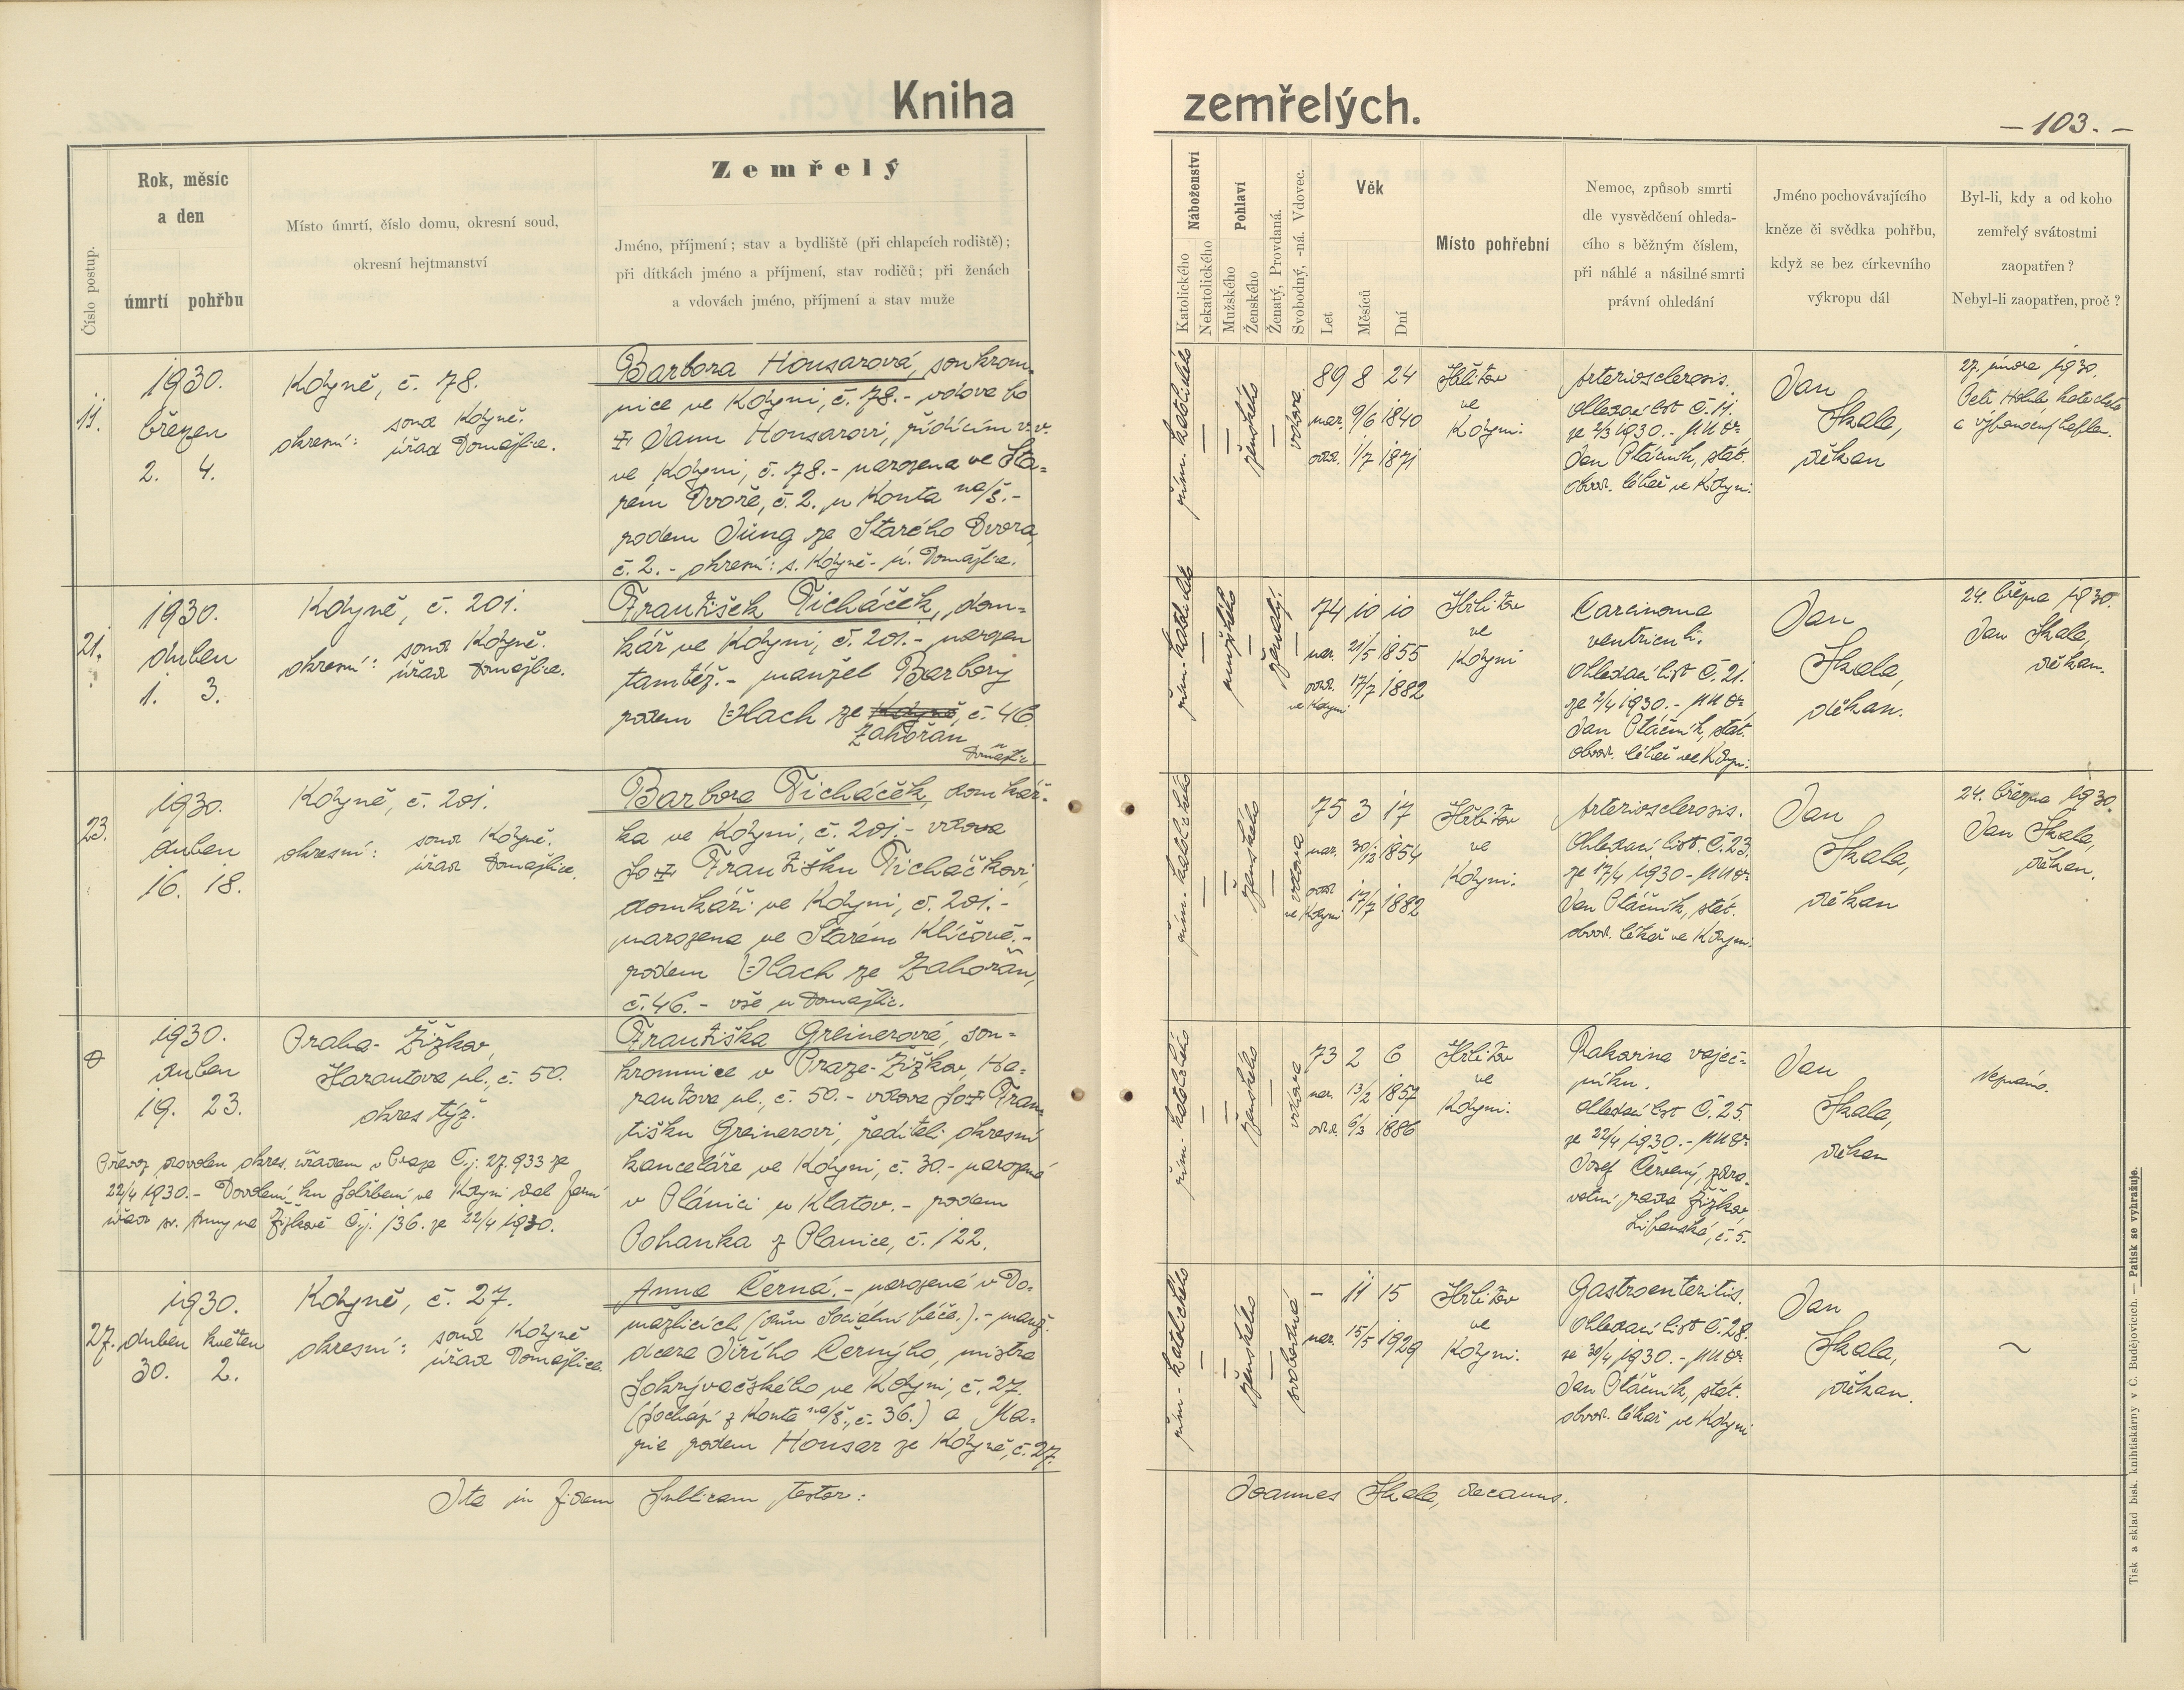 Kniha zemřelých.
— 103. —
Číslo postup.
Rok, měsíc
a den
úmrtí pohřbu
Místo úmrtí, číslo domu, okresní soud,
okresní hejtmanství
Zemřelý
Jméno, příjmení; stav a bydliště (při chlapcích rodiště);
při dítkách jméno a příjmení, stav rodičů; při ženách
a vdovách jméno, příjmení a stav muže
Náboženství
Katolického
Nekatolického
Pohlaví
Mužského
Ženského
Ženatý, Provdaná.
Svobodný, -ná. Vdovec.
Věk
Let
Měsíců
Dní
Místo pohřební
Nemoc, způsob smrti
dle vysvědčení ohleda-
cího s běžným číslem,
při náhlé a násilné smrti
právní ohledání
Jméno pochovávajícího
kněze či svědka pohřbu,
když se bez církevního
výkropu dál
Byl-li, kdy a od koho
zemřelý svátostmi
zaopatřen?
Nebyl-li zaopatřen, proč?
11.
1930.
březen
2. 4.
Kdyně, č. 78.
okresní: soud Kdyně.
úřad Domažlice.
Barbora Housarová, soukrom-
nice ve Kdyni, č. 78.- vdova po
Janu Housarovi, řídícím
ve Kdyni, č. 78.- narozena ve Sta-
rém Dvoře, č. 2. u Konta na/š.-
rodem Jung ze Starého Dvora,
č. 2.- okresní: s. Kdyně- ú. Domažlice.
řím. katolického
ženského
vdova
89 8 24
nar. 9/6 1840
odd. 1/7 1871
Hřbitov
ve
Kdyni.
Arteriosclerosis.
Ohledací list č. 11.
ze 2/3 1930.- MUDr
Jan Ptáčník, stát.
obvod. lékař ve Kdyni.
Jan
Skala,
děkan
27. února 1930.
Petr
21.
1930.
duben
1. 3.
Kdyně, č. 201.
okresní: soud Kdyně.
úřad Domažlice.
František Ticháček, dom-
kář ve Kdyni, č. 201.- narozen
tamtéž.- manžel Barbory
rodem Vlach ze Kdyně, č. 46.
Zahořan
u
Domažlic
řím. katolického
mužského
ženatý.
74 10 10
nar. 21/5 1855
odd. 17/7 1882
ve Kdyni
Hřbitov
ve
Kdyni
Carcinoma
ventriculi.
Ohledací list č. 21.
ze 2/4 1930.- MUDr
Jan Ptáčník, stát.
obvod. lékař ve Kdyni.
Jan
Skala,
děkan.
24. března 1930.
Jan Skala,
děkan.
23.
1930.
duben
16. 18.
Kdyně, č. 201.
okresní: soud Kdyně.
úřad Domažlice.
Barbora Ticháček, domkář-
ka ve Kdyni, č. 201.- vdova
po Františku Ticháčkovi,
domkáři ve Kdyni, č. 201.-
narozena ve Starém Klíčově.-
rodem Vlach ze Zahořan,
č. 46.- vše u Domažlic.
řím. katolického
ženského
vdova
75 3 17
nar. 30/12 1854
odd. 17/7 1882
ve Kdyni
Hřbitov
ve
Kdyni.
Arteriosclerosis.
Ohledací list. č. 23.
ze 17/4 1930- MUDr
Jan Ptáčník, stát.
obvod. lékař ve Kdyni.
Jan
Skala,
děkan
24. března 1930.
Jan Skala,
děkan.
1930.
duben
19. 23.
Praha- Žižkov,
Harantova ul., č. 50.
okres týž.
Převoz povolen okres. úřadem v Praze Č.j. 27.933 ze
22/4 1930.- Dovolení ku pohřbení ve Kdyni dal farní
úřad sv. Anny na Žižkově č.j. 136. ze 22/4 1930.
Františka Greinerová, sou-
kromnice v Praze- Žižkov, Ha-
rantova ul., č. 50.- vdova po Fran-
tišku Greinerovi, řediteli okresní
kanceláře ve Kdyni, č. 30.- narozená
v Plánici u Klatov.- rodem
Pohanka z Planice, č. 122.
řím. katolického
ženského
vdova
73 2 6
nar. 13/2 1857
odd. 6/3 1886
Hřbitov
ve
Kdyni.
Rakovina vaječ-
níku.
Ohledací list č. 25.
ze 22/4 1930.- MUDr
Josef Červený, zdra-
votní rada Žižkov,
č. 5.
Jan
Skala,
děkan
Neznámo.
27.
1930.
duben květen
30. 2.
Kdyně, č. 27.
okresní: soud Kdyně
úřad Domažlice
Anna Černá.- narozená v Do-
mažlicích (dům sociální péče.).- manž.
dcera Jiřího Černýho, mistra
pokrývačského ve Kdyni, č. 27.
(pochází z Konta na/š., č. 36.) a Ma-
rie rodem Housar ze Kdyně, č. 27.
řím. katolického
ženského
svobodná
- 11 15
nar. 15/5 1929
Hřbitov
ve
Kdyni.
Gastroenteritis.
Ohledací list č. 28.
ze 30/4 1930.- MUDr
Jan Ptáčník, stát.
obvod. lékař ve Kdyni
Jan
Skala,
děkan.
~
Ita in fidem publicam testor: Joannes Skala, decanus.
Tisk a sklad bisk. knihtiskárny v Č. Budějovicích. — Patisk se vyhražuje.